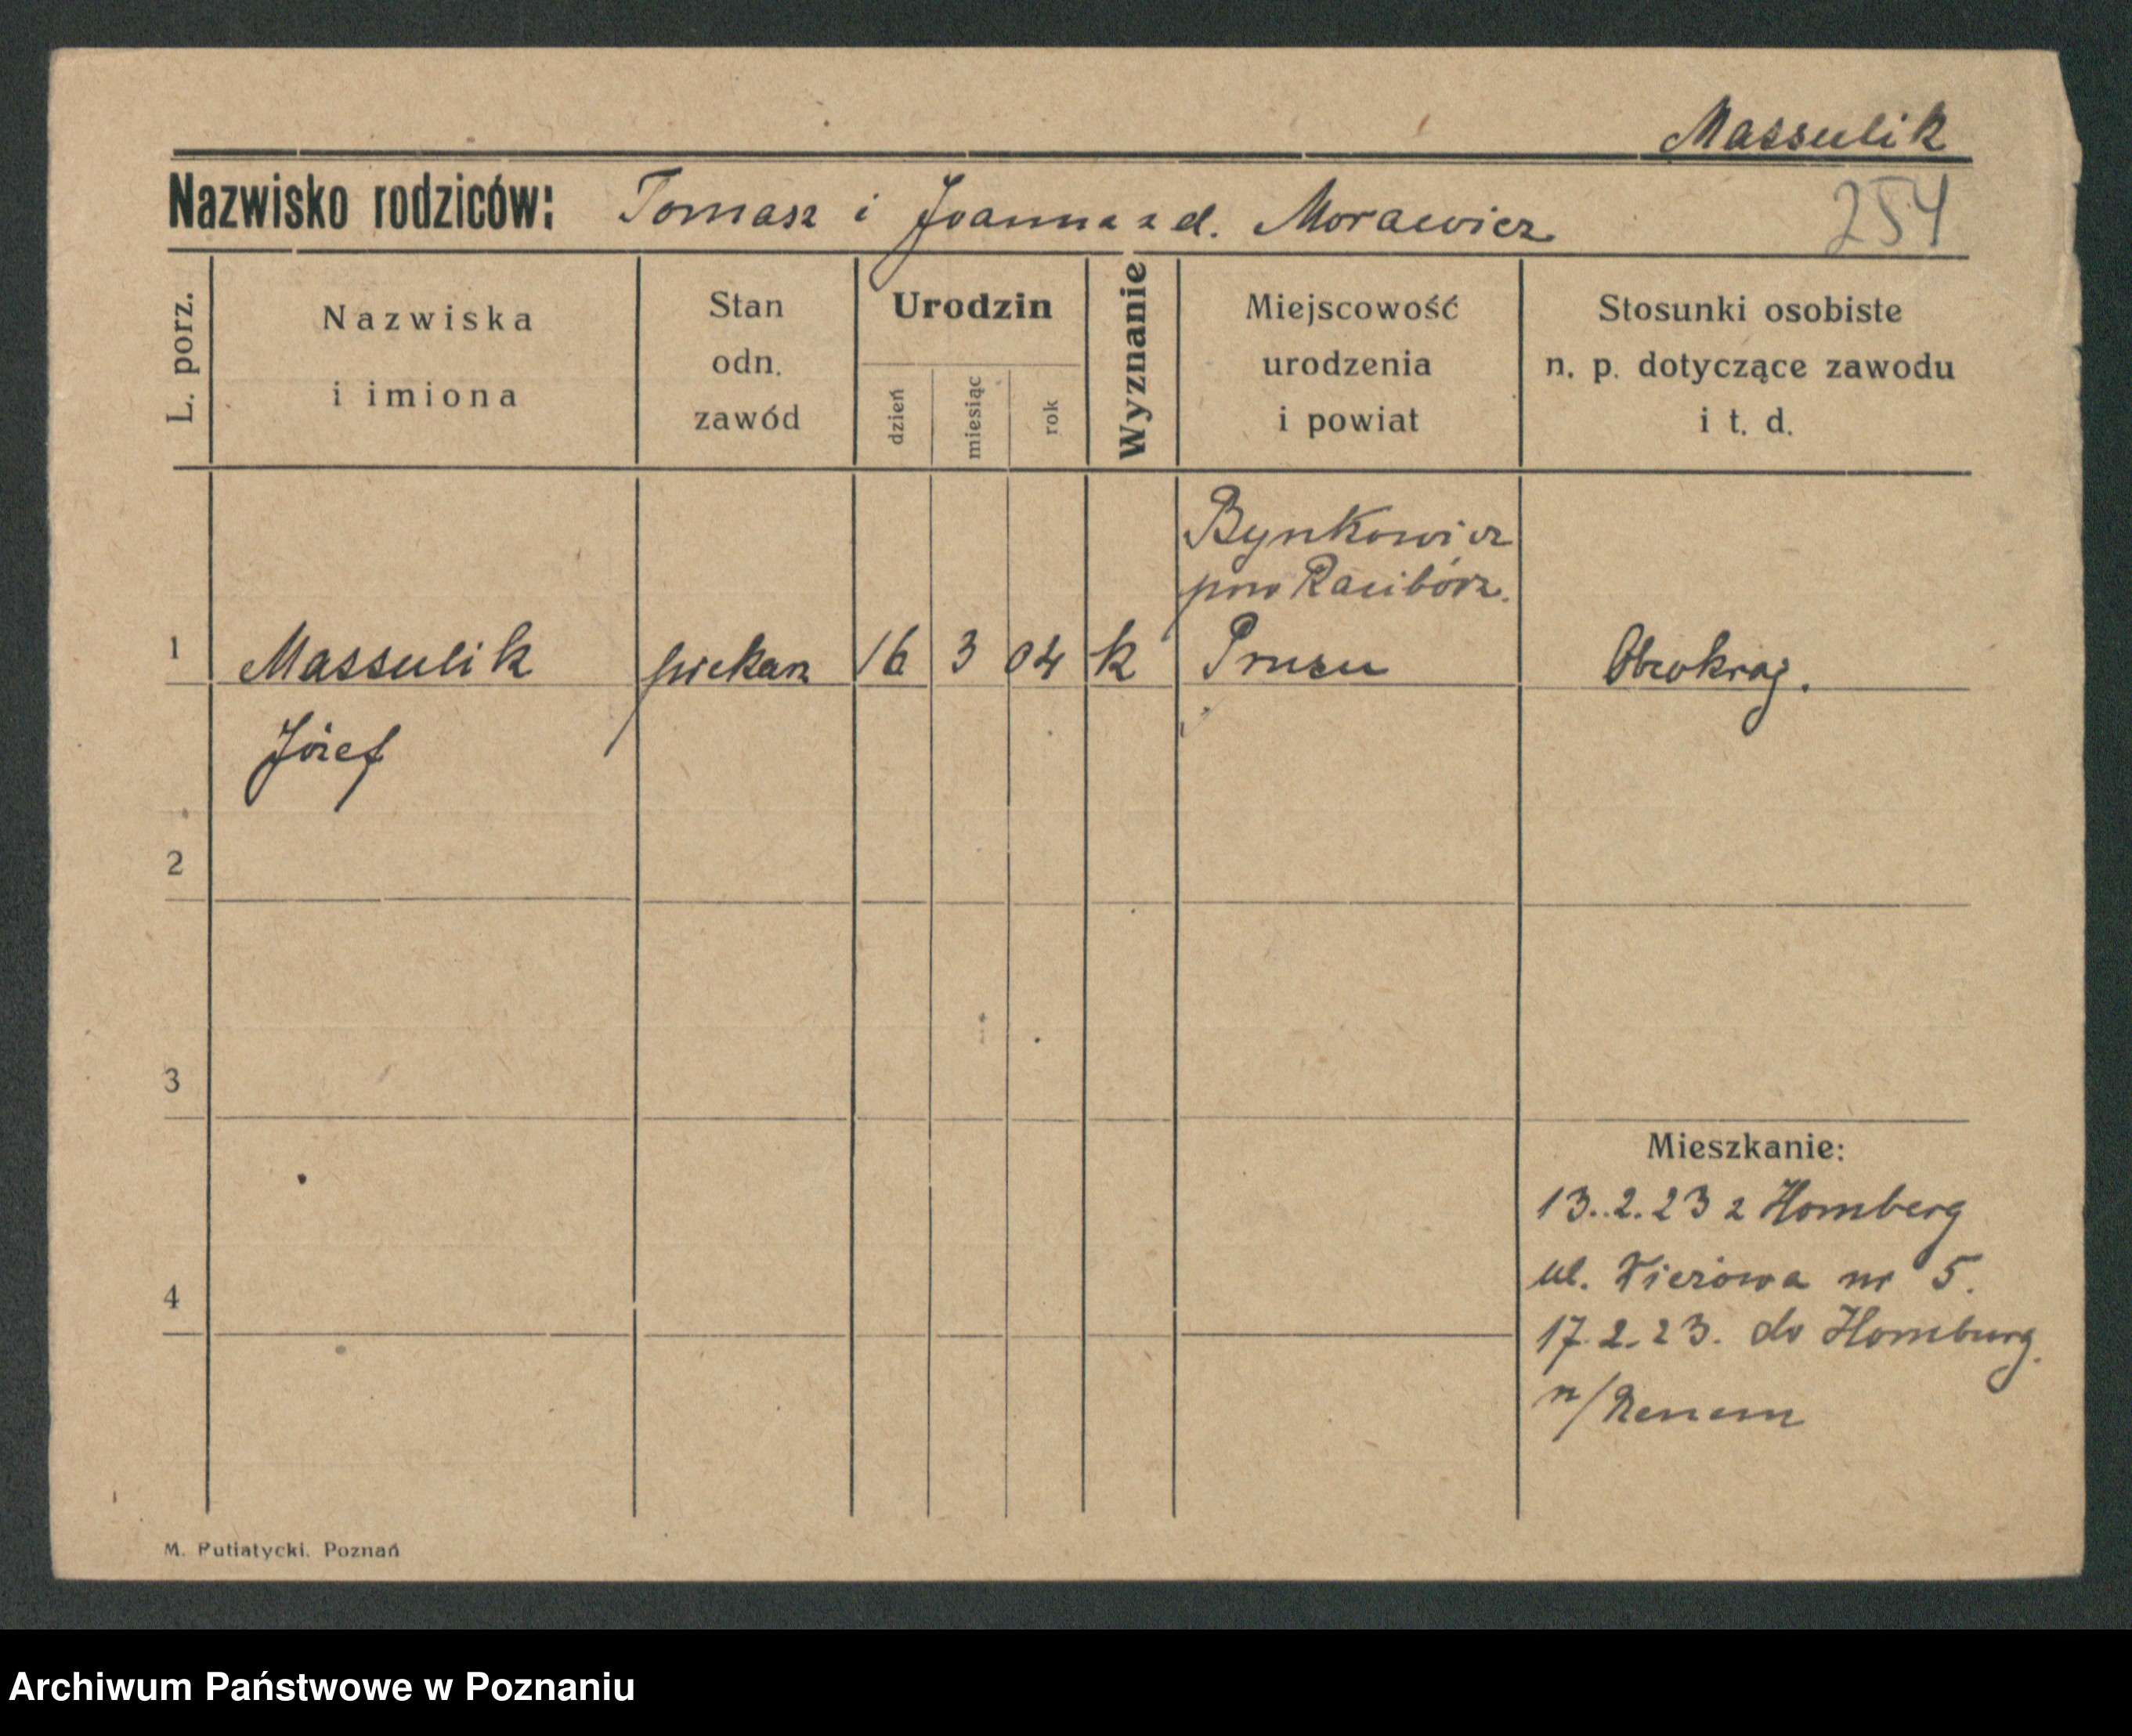 Massulik
Nazwisko rodziców: Tomasz i Joanna z d. Morawiez
254
L. porz.
Nazwiska
i imiona
Stan
odn.
zawód
Urodzin
dzień
miesiąc
rok
Wyznanie
Miejscowość
urodzenia
i powiat
Stosunki osobiste
n. p. dotyczące zawodu
i t. d.
Bynkowicz
pow Racibórz.
1 Massulik piekarz 16 3 04 k Prusu Obcokraj.
Józef
2
3
Mieszkanie:
13.2.23 z Homberg
ul. nr 5.
4
17.2.23. do Homburg.
n/Renem
M. Putiatycki. Poznań
Archiwum Państwowe w Poznaniu